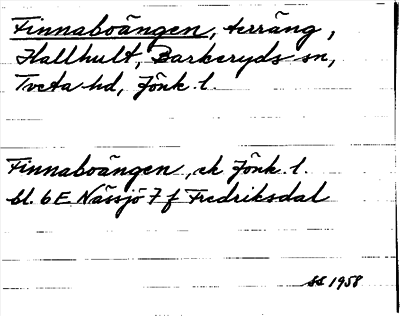 Finnaboängen, terräng,
Hallhult, Barkeryds sn,
Tveta hd, Jönk. l.
Finnaboängen, ek Jönk. l.
bl. 6E Nässjö 7 f Fredriksdal
SS 1958